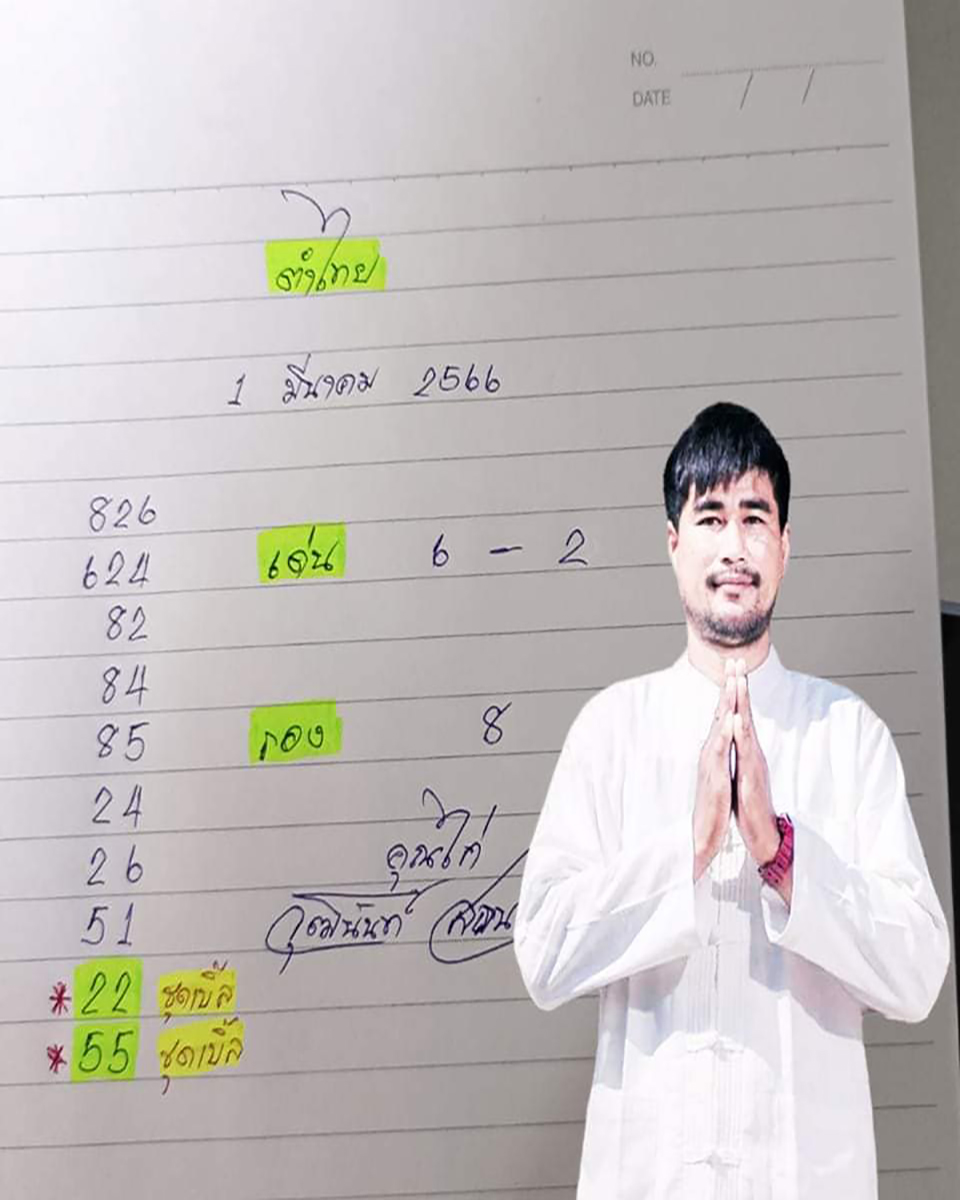 NO.
DATE / /
ตำไทย
1 มีนาคม 2566
826
624 เด่น 6 - 2
82
84
85 รอง 8
24
26 คุณไก่
51 วุฒินันท์
* 22 ชุดเบิ้ล
* 55 ชุดเบิ้ล